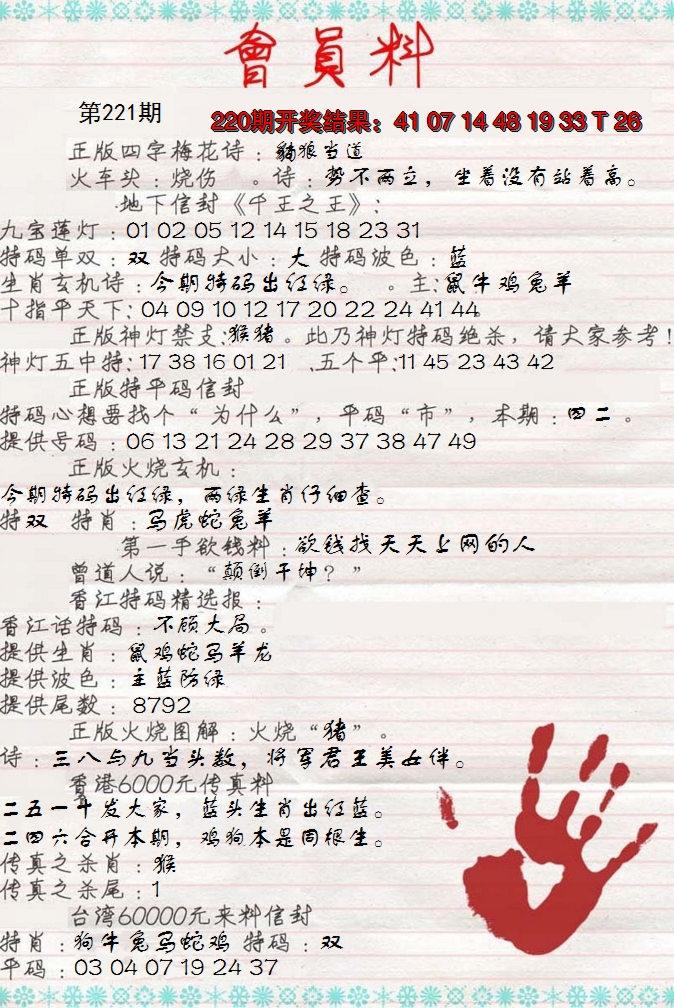 會員料
第221期
220期开奖结果：41 07 14 48 19 33 T 26
正版四字梅花诗：豺狼当道
火车头：烧伤 。诗：势不两立，坐着没有站着高。
地下信封《千王之王》：
九宝莲灯：01 02 05 12 14 15 18 23 31
特码单双：双 特码大小：大 特码波色：蓝
生肖玄机诗：今期特码出红绿。 。主：鼠牛鸡兔羊
十指平天下：04 09 10 12 17 20 22 24 41 44
正版神灯禁支：猴猪。此乃神灯特码绝杀，请大家参考！
神灯五中特：17 38 16 01 21 .五个平：11 45 23 43 42
正版特平码信封
特码心想要找个“为什么”，平码“市”，本期：四二。
提供号码：06 13 21 24 28 29 37 38 47 49
正版火烧玄机：
今期特码出红绿，两绿生肖仔细查。
特双 特肖：马虎蛇兔羊
第一手欲钱料：欲钱找天天上网的人
曾道人说：“颠倒干坤？”
香江特码精选报：
香江话特码：不顾大局。
提供生肖：鼠鸡蛇马羊龙
提供波色：主蓝防绿
提供尾数：8792
正版火烧图解：火烧“猪”。
诗：三八与九当头数，将军君王美女伴。
香港6000元传真料
二五一十发大家，蓝头生肖出红蓝。
二四六合开本期，鸡狗本是同根生。
传真之杀肖：猴
传真之杀尾：1
台湾60000元来料信封
特肖：狗牛兔马蛇鸡 特码：双
平码：03 04 07 19 24 37